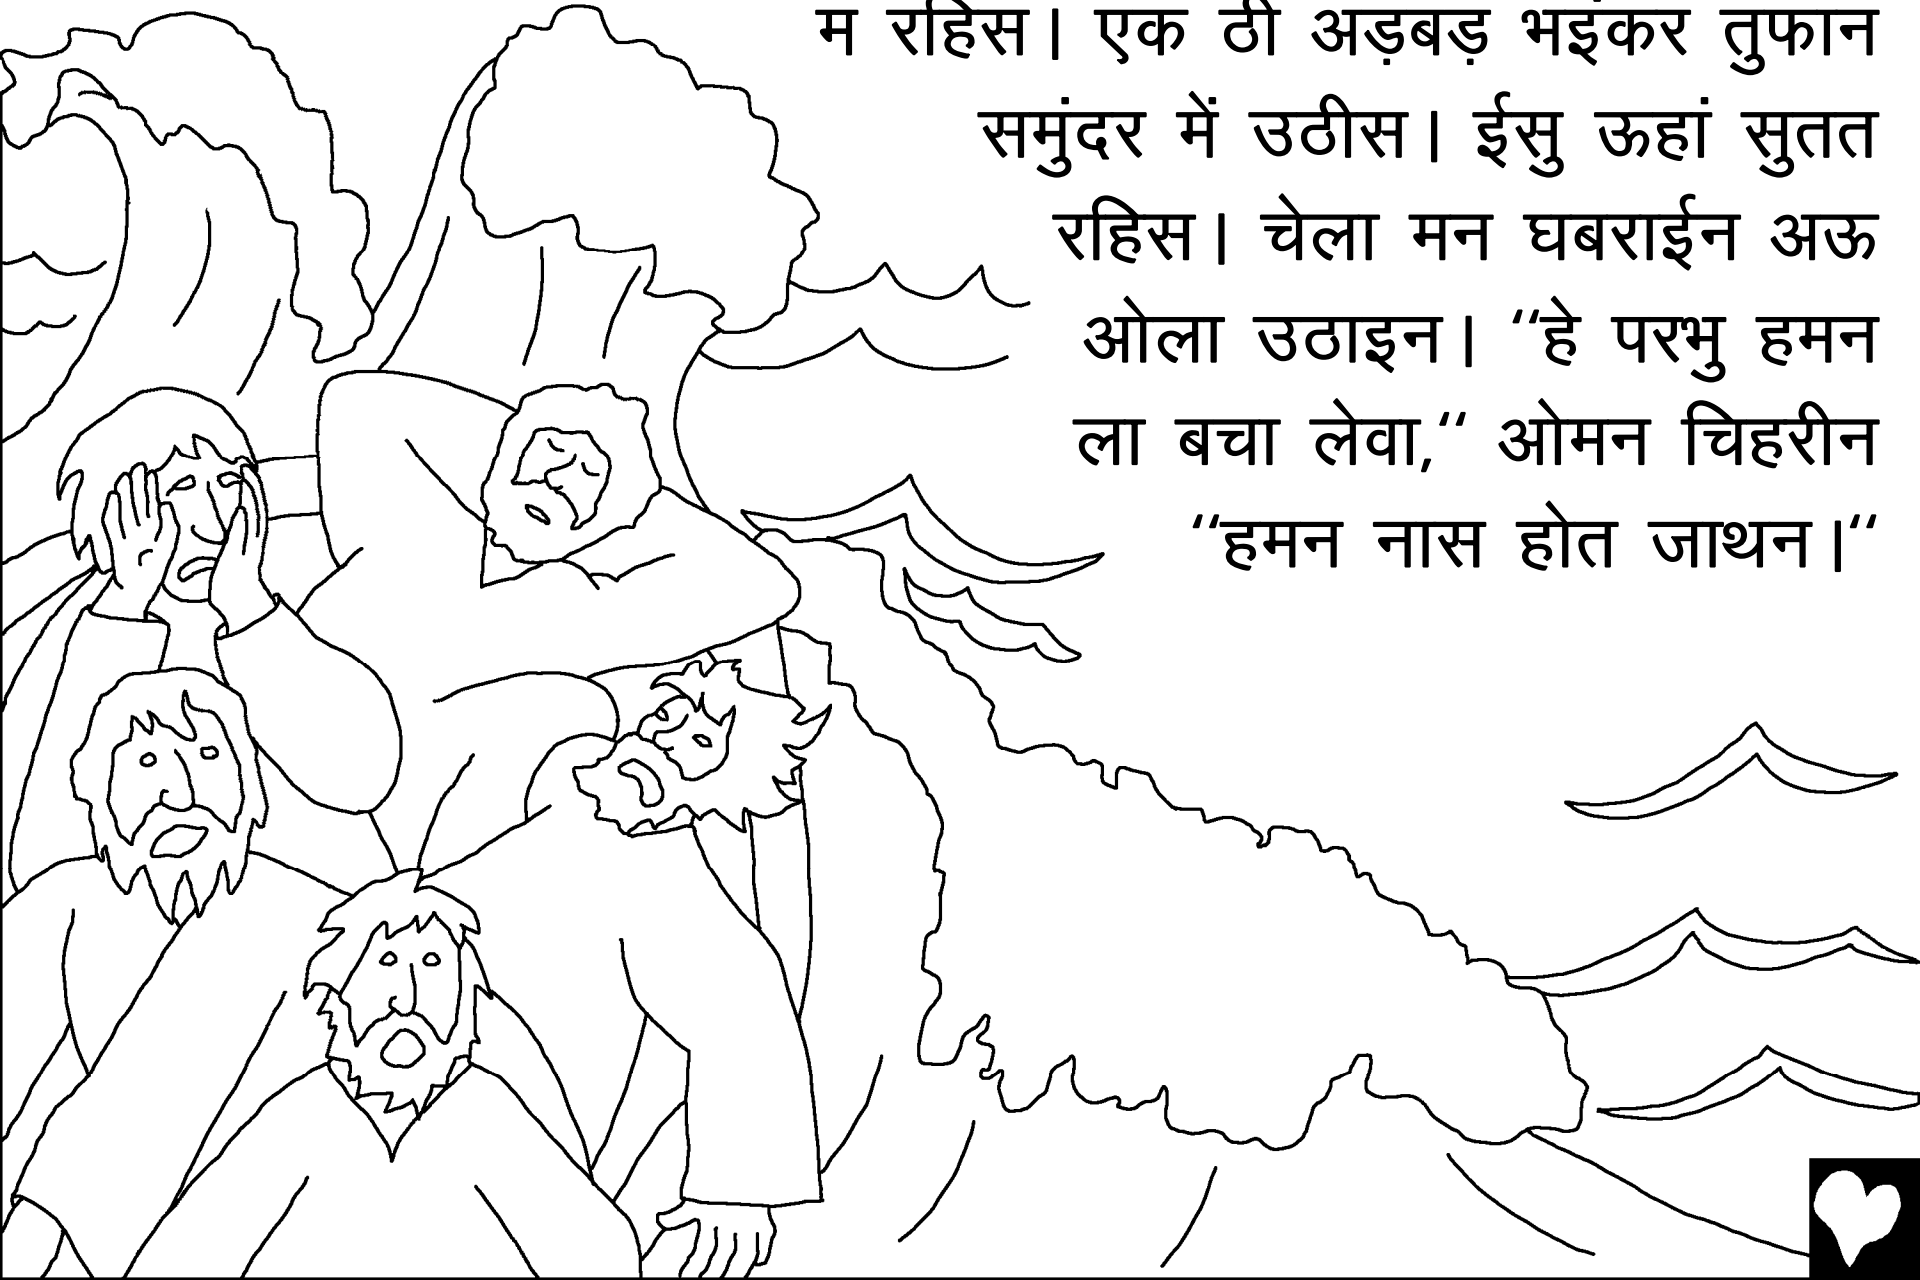 म रहिस। एक ठी अड़बड़ भइंकर तुफान
समुंदर में उठीस। ईसु ऊहां सुतत
रहिस। चेला मन घबराईन अऊ
ओला उठाइन। “हे परभु हमन
ला बचा लेवा,“ ओमन चिहरीन
“हमन नास होत जाथन।“